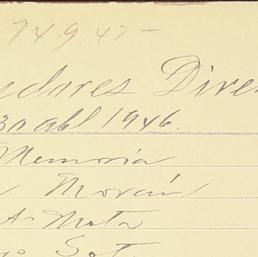 749.47-
dores Diver
30 abl 1946.
Memoria
Morán
A. Mata
Sot